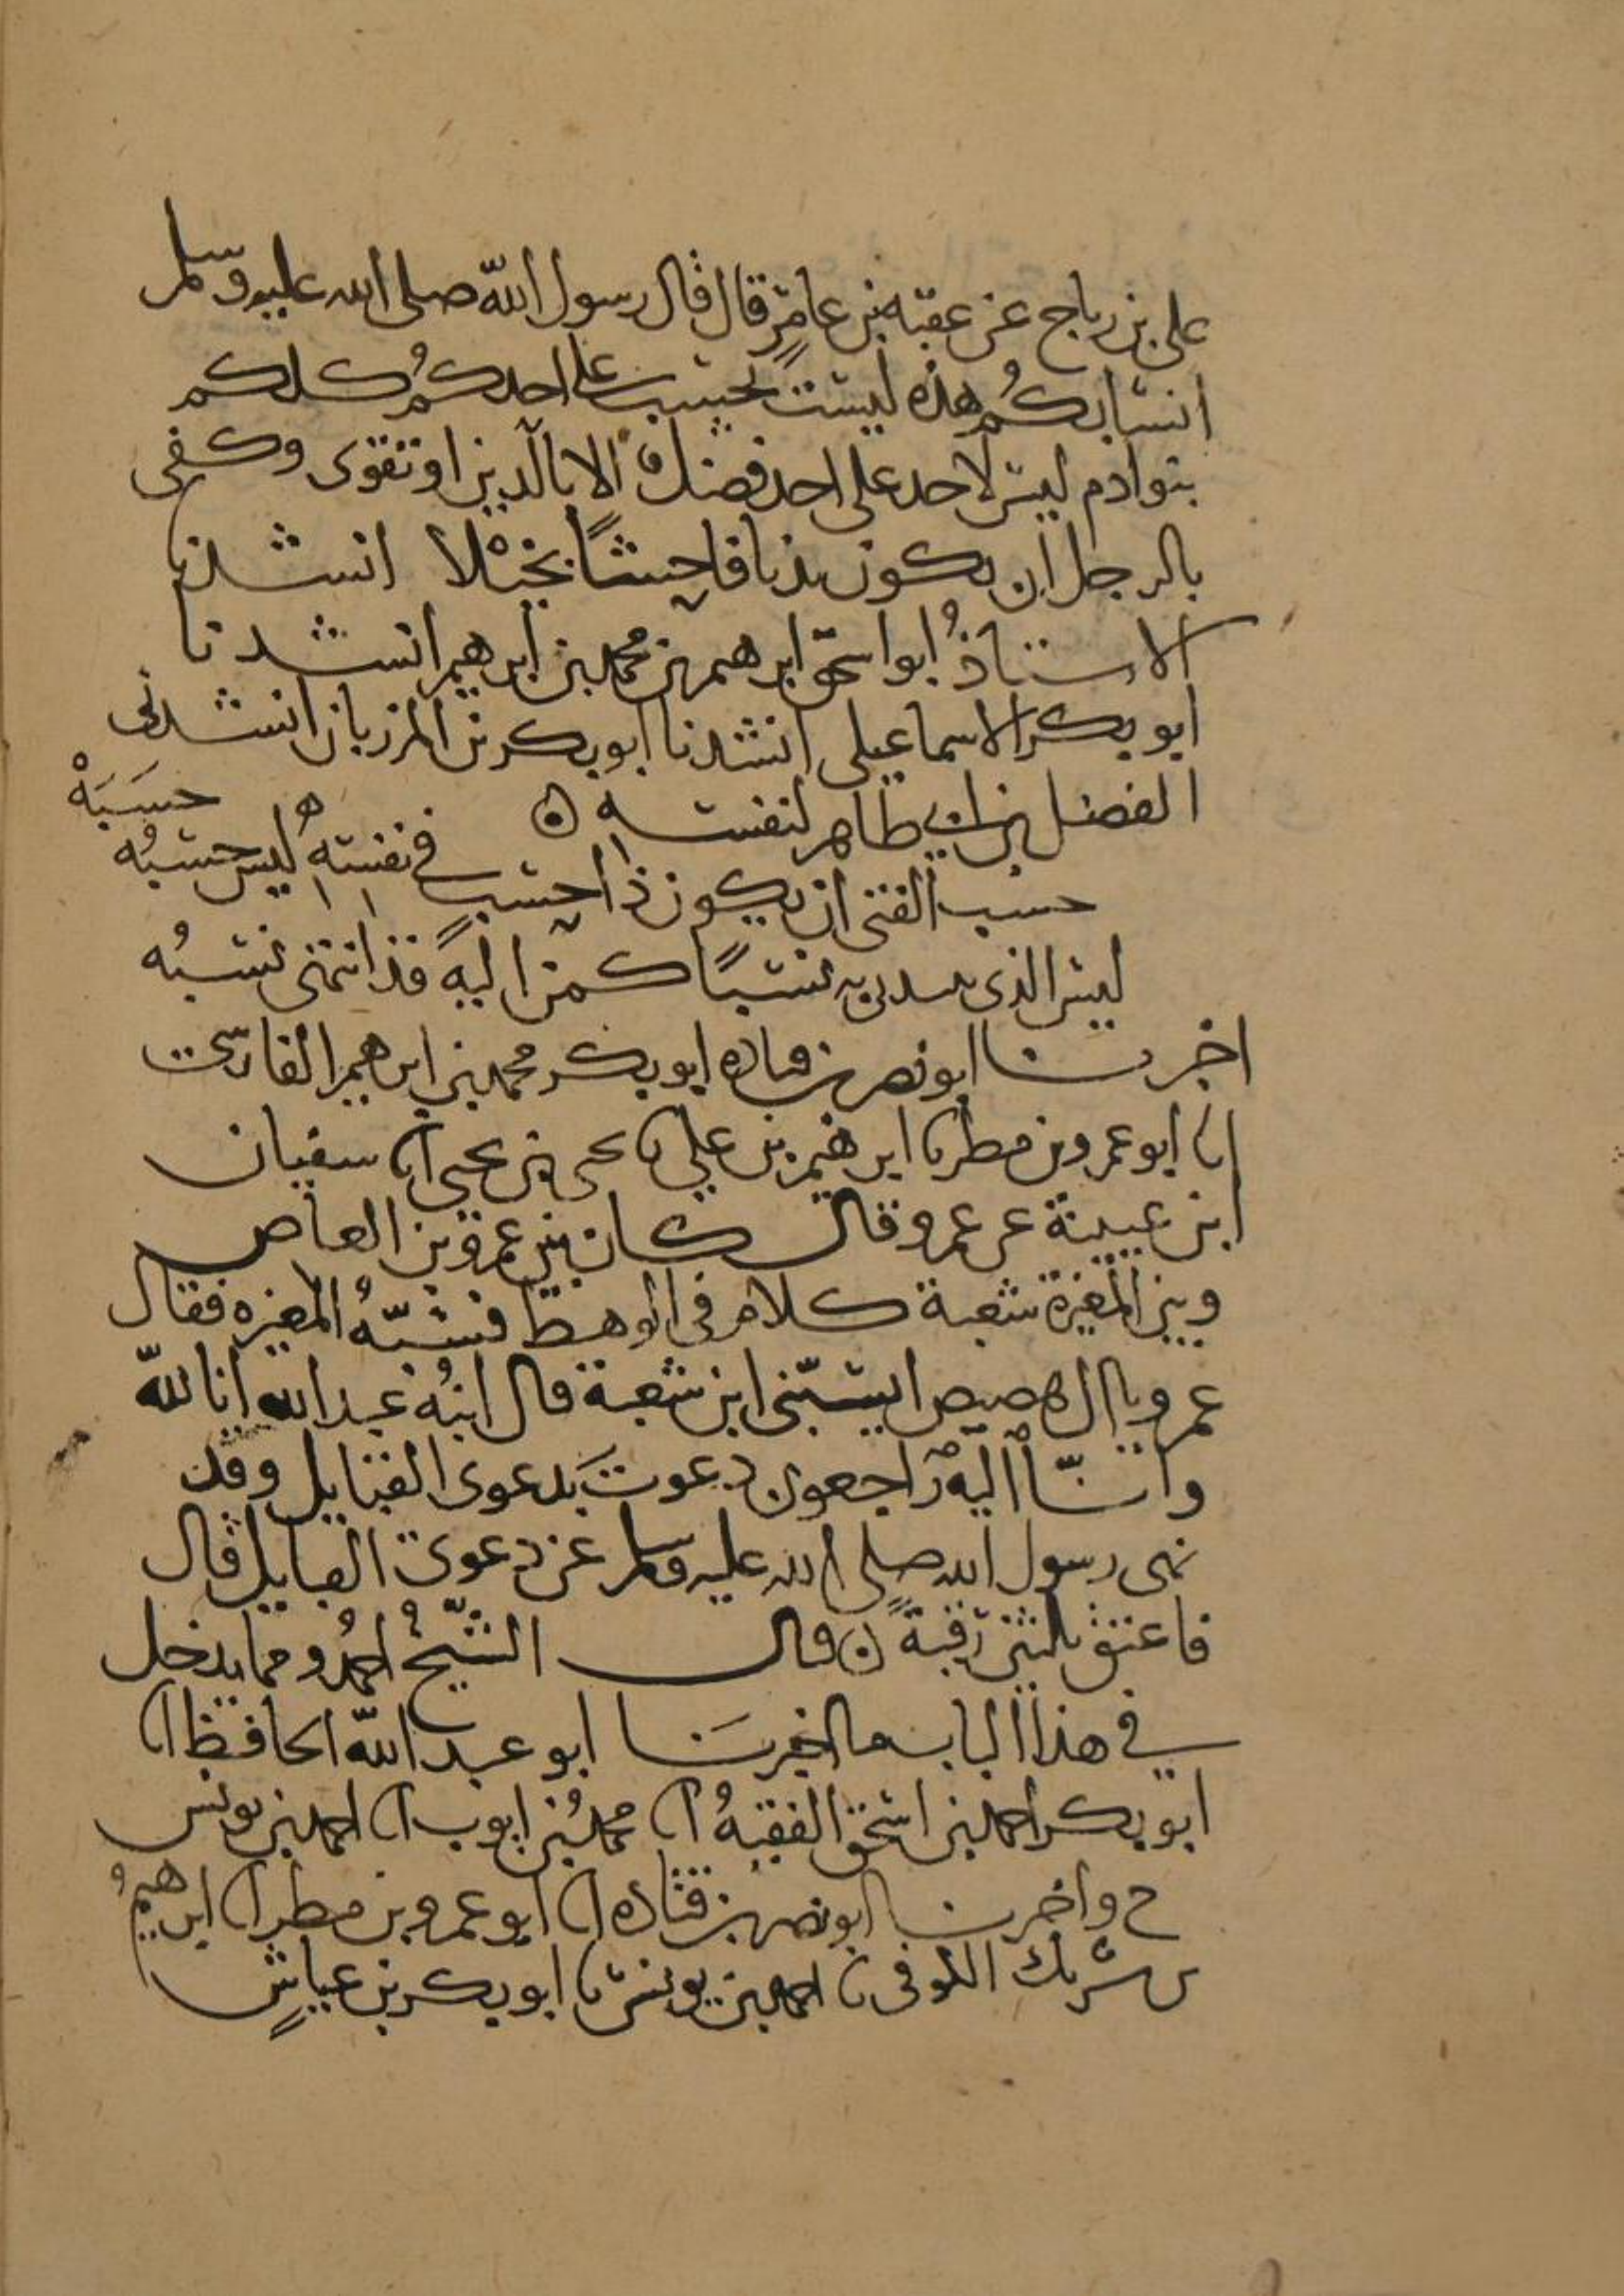 على بن رباح عن عقبة بن عامر قال قال رسول الله صلى الله عليه وسلم
انسابكم هذه ليست بحسب على احدكم كلكم
بنو ادم ليس لاحد على احد فضل الا بالدين او تقوى وكفى
بالرجل ان يكون بذيا فاحشا بخيلا انشدنا
الاستاذ ابو اسحق ابرهيم بن محمد بن ابرهيم انشدنا
ابو بكر الاسماعيلى انشدنا ابو بكر بن المرزبان انشدنى
الفضل بن ابي طاهر لنفسه
حسب الفتى ان يكون ذا حسب في نفسه ليس حسبه حسبه
ليس الذى يبتدى به نسبا كمن اليه قد انتهى نسبه
اخبرنا ابو نصر بن قتاده ابو بكر محمد بن ابرهيم الفارسي
انا ابو عمرو بن مطر نا ابرهيم بن على نا يحيى بن يحيى انا سفيان
ابن عيينة عن عمرو قال كان بين عمرو بن العاص
وبين المغيرة شعبة كلام في الوهط فسبه المغيره فقال
عمرو يا ال هصيص ايسبنى ابن شعبة قال ابنه عبد الله انا لله
وانا اليه راجعون دعوت بدعوى القبايل وقد
نهى رسول الله صلى الله عليه وسلم عن دعوى القبايل قال
فاعتق ثلثين رقبة قال الشيخ احمد ومما يدخل
في هذا الباب ما اخبرنا ابو عبد الله الحافظ انا
ابو بكر احمد بن اسحق الفقيه انا محمد بن ايوب انا احمد بن يونس
ح واخبرنا ابو نصر بن قتاده انا ابو عمرو بن مطر انا ابرهيم
بن شريك الكوفى نا احمد بن يونس نا ابو بكر بن عياش